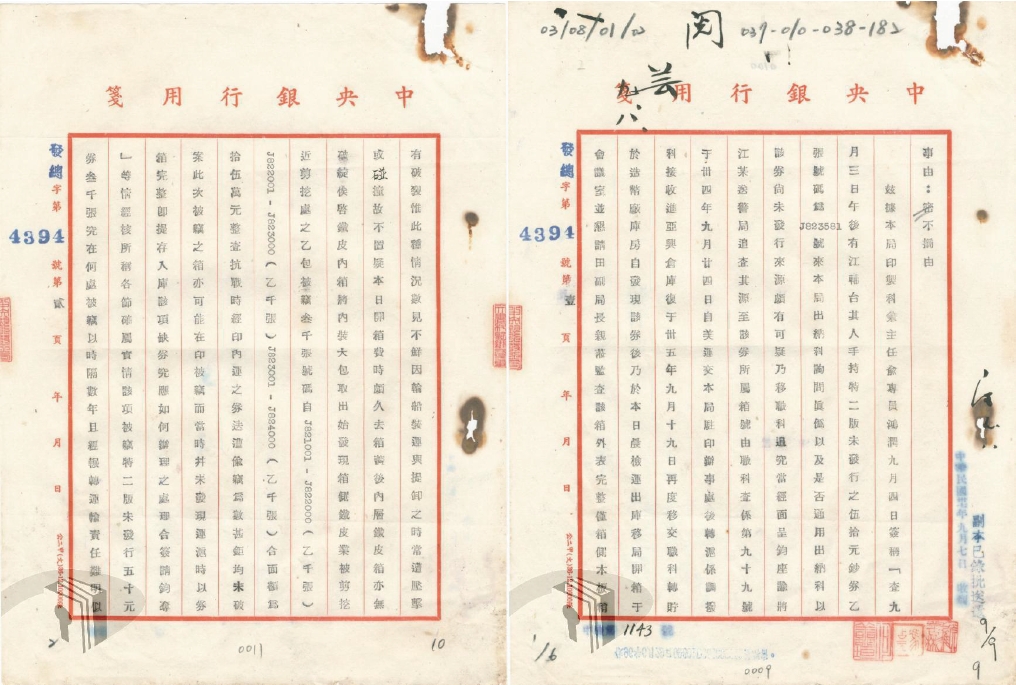 03/08/01/02
039-010-038-182
中央銀行用箋
事由：密不摘由
玆據本局印製科兼主任兪專員鴻潤九月四日簽稱「查九
月三日午後有江輔台其人手持特二版未發行之伍拾元鈔券乙
張號碼爲J823581號來本局出納科詢問眞僞以及是否通用出納科以
該券尚未發行來源顯有可疑乃移職科追究當經面呈鈞座諭將
江某送警局追查其源至該券所屬箱號由職科查係第九十九號
于卅四年九月廿四日自美運交本局駐印辦事處後轉滬係調撥
科接收進亞興倉庫復于卅五年九月十九日再度移交職科轉貯
於造幣廠庫房自發現該券後乃於本日晨檢運出庫移局開箱于
會議室並懇請田副局長親蒞監查該箱外表完整僅箱健木板稍
發總字第4394號第壹頁 年 月 日
副本已
9/9
9
1143 號
0009
中央銀行用箋
有破裂惟此種情況數見不鮮因輪船裝運與提卸之時常遭壓擊
或碰撞故不置疑本日開箱費時頗久去箱蓋後內層鐵皮箱亦無
破綻後啓鐵皮內箱將內裝大包取出始發現箱健鐵皮業被剪挖
近剪挖處之乙包被竊叁千張號碼自J821001 - J822000(乙千張)
J822001 - J823000(乙千張)J823001 - J824000(乙千張)合面額爲
拾伍萬元整查抗戰時經印內運之券迭遭偷竊爲數甚鉅均未破
案此次被竊之箱亦可能在印被竊而當時幷未發現運滬時以券
箱完整卽提存入庫該項缺券究應如何辦理之處理合簽請鈞鑒
」等情經核所稱各節確屬實情該項被竊特二版未發行五十元
券叁千張究在何處被竊以時隔數年且經輾轉運輸責任難明似
發總字第4394號第貳頁 年 月 日
0011
10